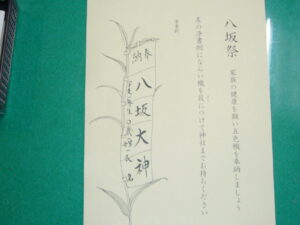 八坂祭
家族の健康を願い五色幟を奉納しましょう
左の浄書例にならい幟を裁につけて神社までお持ちください
浄書例
奉納
八坂大神